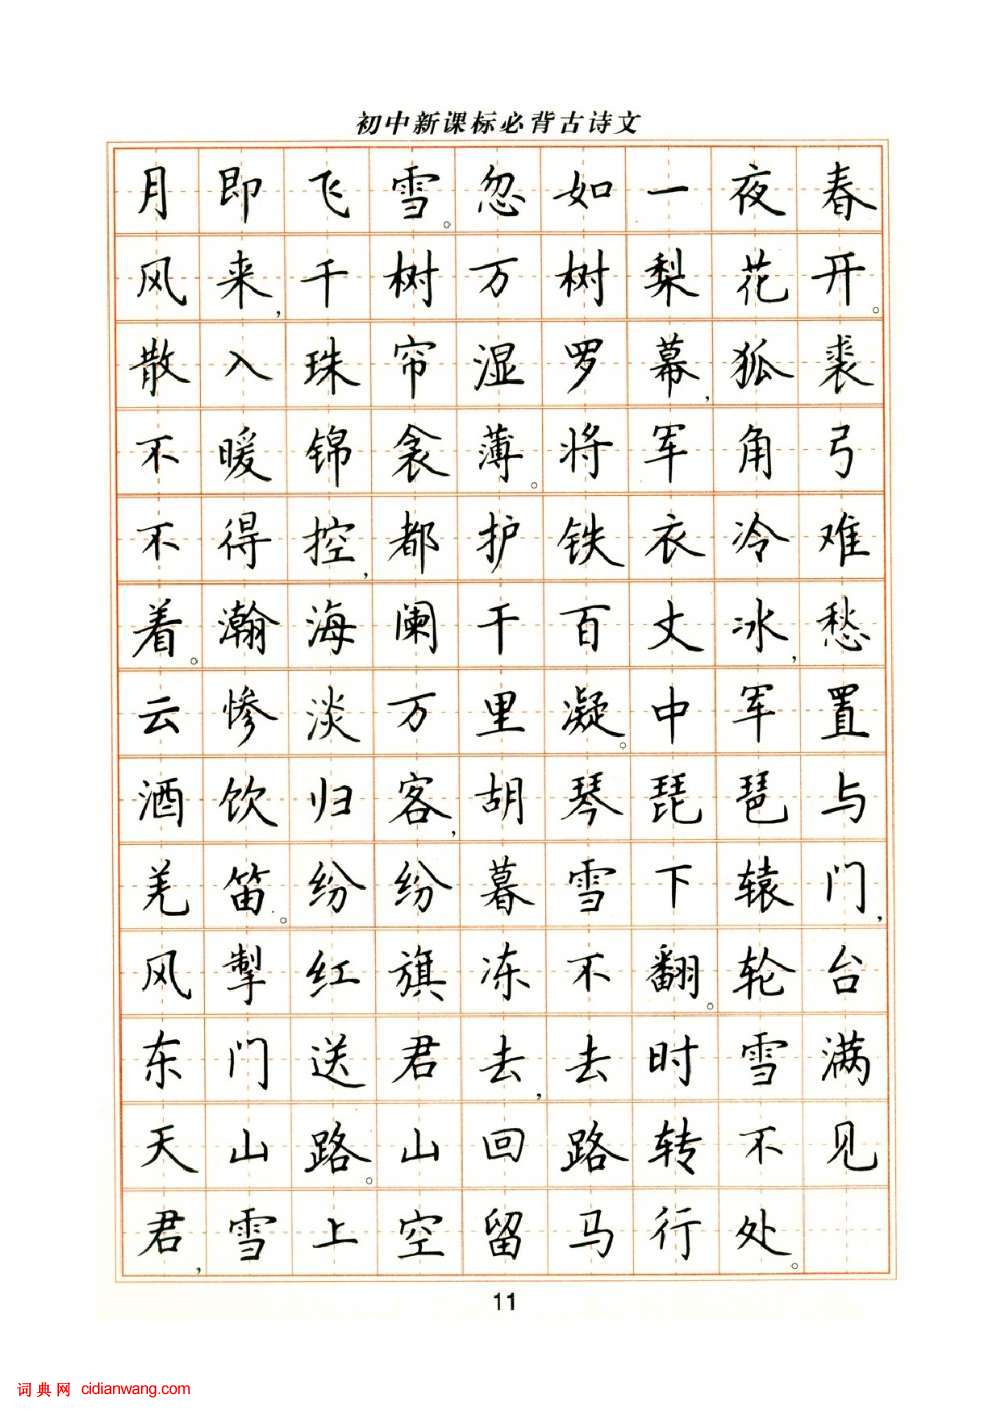 初中新课标必背古诗文
月即飞雪。忽如一夜春
风来,千树万树梨花开。
散入珠帘湿罗幕,狐裘
不暖锦衾薄。将军角弓
不得控,都护铁衣冷难
着。瀚海阑干百丈冰,愁
云惨淡万里凝。中军置
酒饮归客,胡琴琵琶与
羌笛。纷纷暮雪下辕门,
风掣红旗冻不翻。轮台
东门送君去,去时雪满
天山路。山回路转不见
君,雪上空留马行处。
11
词典网 cidianwang.com